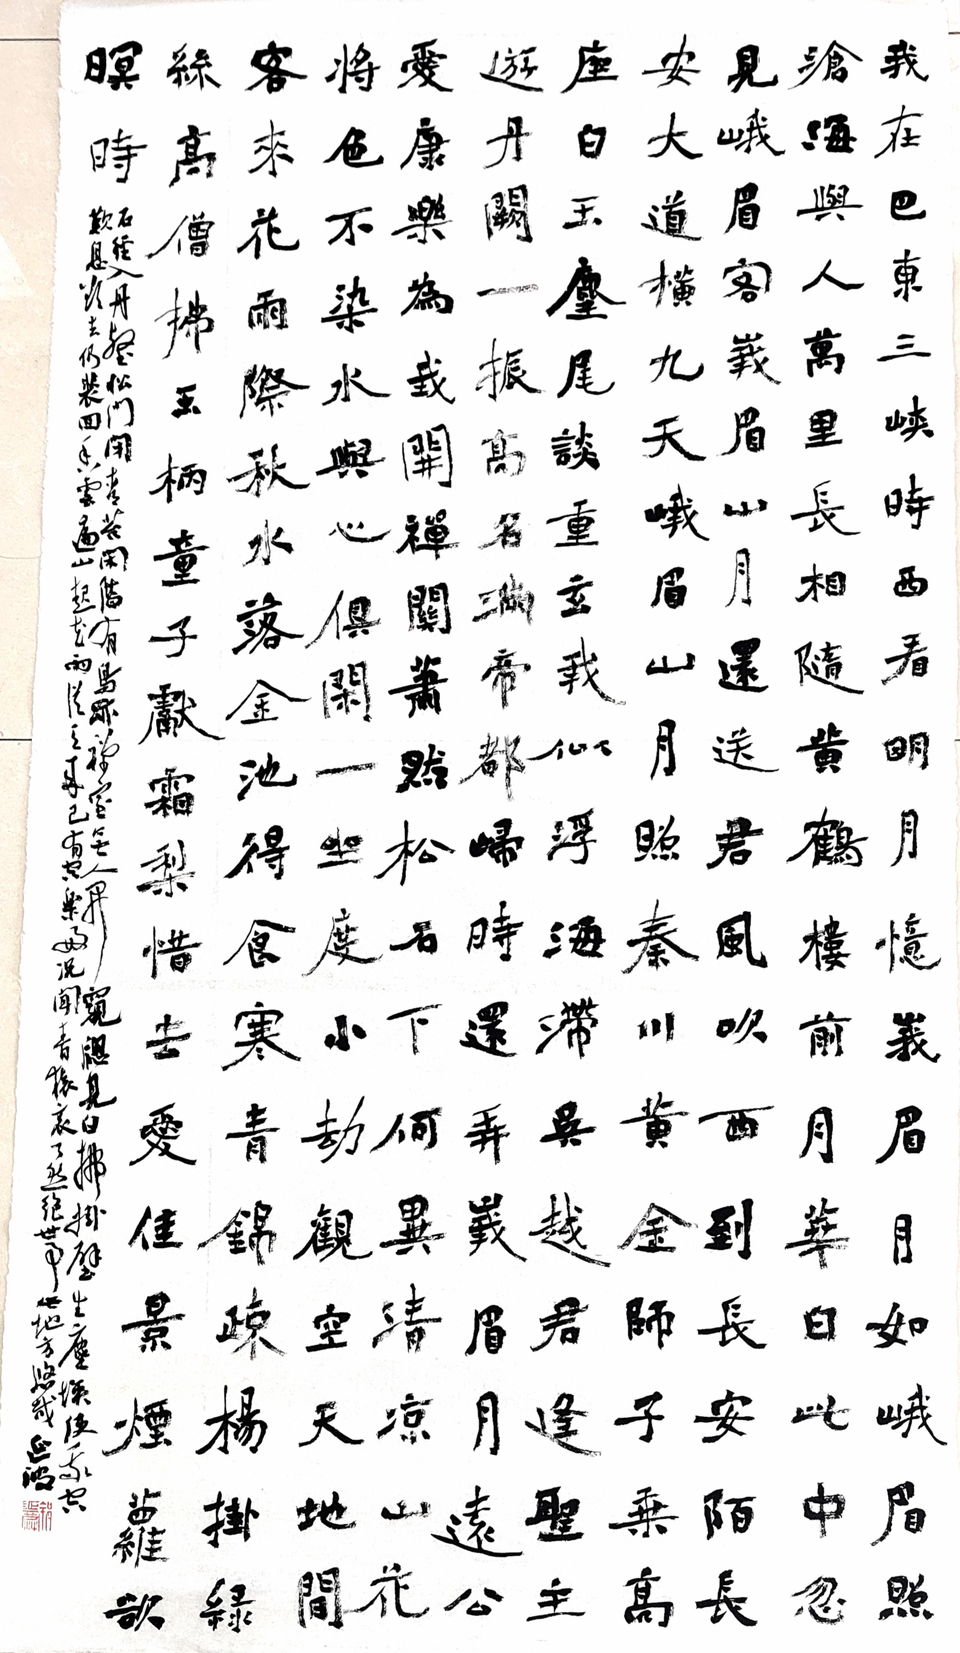 我在巴東三峽時西看明月憶峩眉月如峨眉照
滄海與人萬里長相隨黃鶴樓前月華白此中忽
見峨眉客峩眉山月還送君風吹西到長安陌長
安大道橫九天峨眉山月照秦川黃金師子乘高
座白玉麈尾談重玄我似浮海滯吳越君逢聖主
遊丹闕一振高名滿帝都歸時還弄峩眉月遠公
愛康樂為我開禪關蕭然松石下何異清涼山花
將色不染水與心俱閑一坐度小劫觀空天地間
客來花雨際秋水落金池得食寒青錦疎楊掛綠
絲高僧拂玉柄童子獻霜梨惜去愛佳景煙蘿欲
暝時
石徑入丹壑松門閉青苔閑階有鳥跡禪室無人開窺牕見白拂掛壁生塵埃使我空
歎息欲去仍裴回香雲遍山起花雨從天來已有空樂好況聞青猿哀了然絕世事此地方悠哉